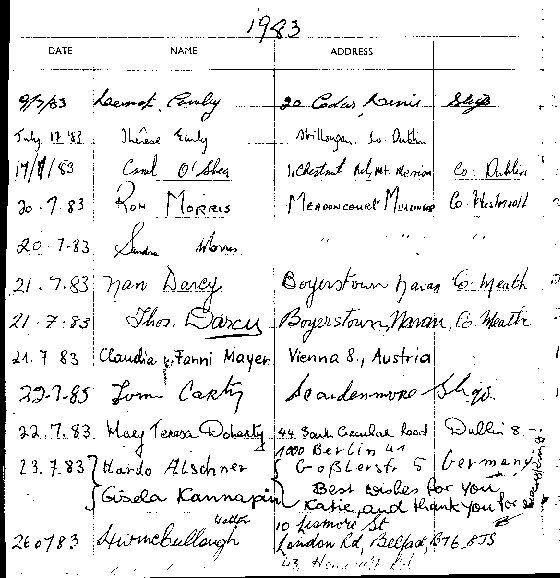 1983
DATE NAME ADDRESS
9/7/83 Dermot 20 Cedar Sligo
July 17 '83 Thérèse Early Stillorgan, Co. Dublin
19/7/83 Carol O'Shea 1, Chestnut Rd, Mt. Merrion Co. Dublin
20.7.83 Ron Morris Meadoncourt Co. Westmeath
20.7.83 Sandra Morris " " "
21.7.83 Nan Darcy Boyerstown Navan Co. Meath
21.7.83 Thos. Darcy Boyerstown, Navan, Co. Meath
21.7 83 Claudia & Fanni Mayer Vienna 8., Austria
22.7.83 Tom Carty Scardenmore Sligo.
22.7.83 Mary Teresa Doherty 44 South Circular Road Dublin 8.
1000 Berlin 41
23.7.83 Hardo Alschner Goßlerstr 5 Germany
Gisela Kannapin Best wishes for you
Katie, and thank you for
10 Lismore St
26 07 83 London Rd, Belfast, BT6